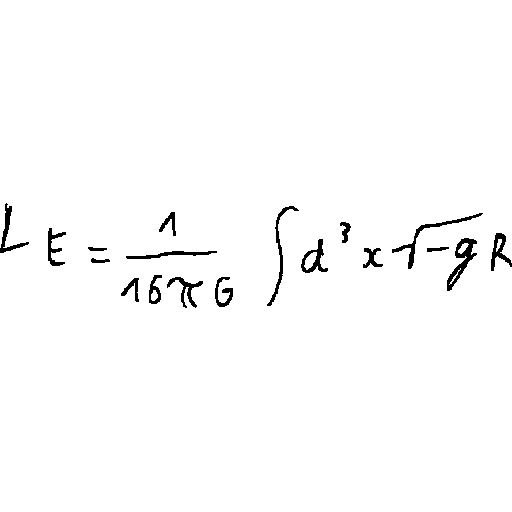 L_E = \frac{1}{16\pi G} \int d^3 x \sqrt{-g} R